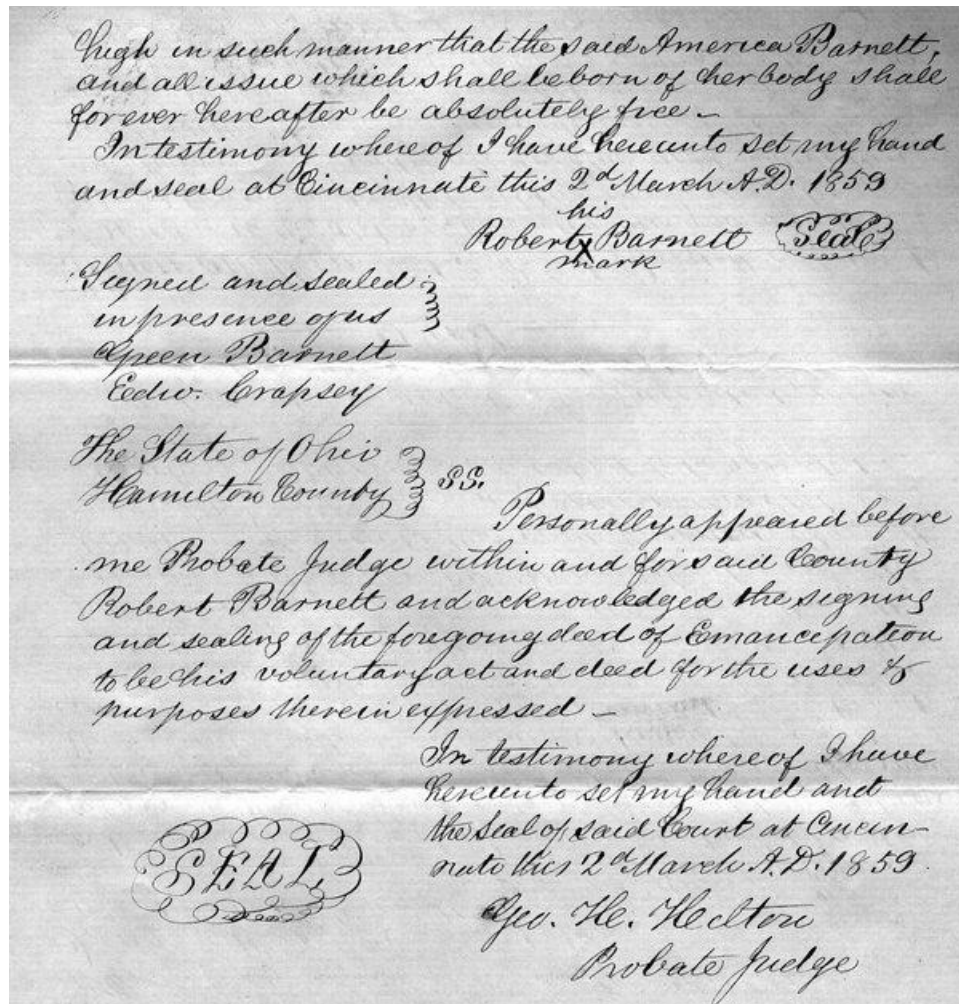 high in such manner that the said America Barnett,
and all issue which shall be born of her body shall
forever hereafter be absolutely free —
In testimony whereof I have hereunto set my hand
and seal at Cincinnati this 2d March A.D. 1859
his
Robert X Barnett Seal
mark
Signed and sealed
in presence of us
Green Barnett
Edw. Crapsey
The State of Ohio
Hamilton County SS.
Personally appeared before
me Probate Judge within and for said County
Robert Barnett and acknowledged the signing
and sealing of the foregoing deed of Emancipation
to be his voluntary act and deed for the uses &
purposes therein expressed —
In testimony whereof I have
hereunto set my hand and
the Seal of said Court at Cincin-
nati this 2d March A.D. 1859.
SEAL
Geo. H. Hilton
Probate Judge